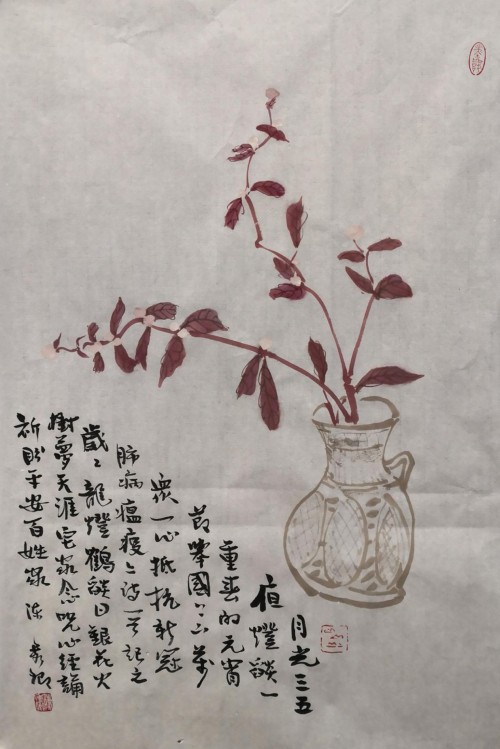 月光三五
夜燈燄一
重春的元宵
節舉國上下萬
眾一心抵抗新冠
肺病瘟疫之詩一首記之
歲歲龍燈鶴燄日銀花火
樹夢天涯宅家念咒心經誦
祈盼平安百姓家 陳